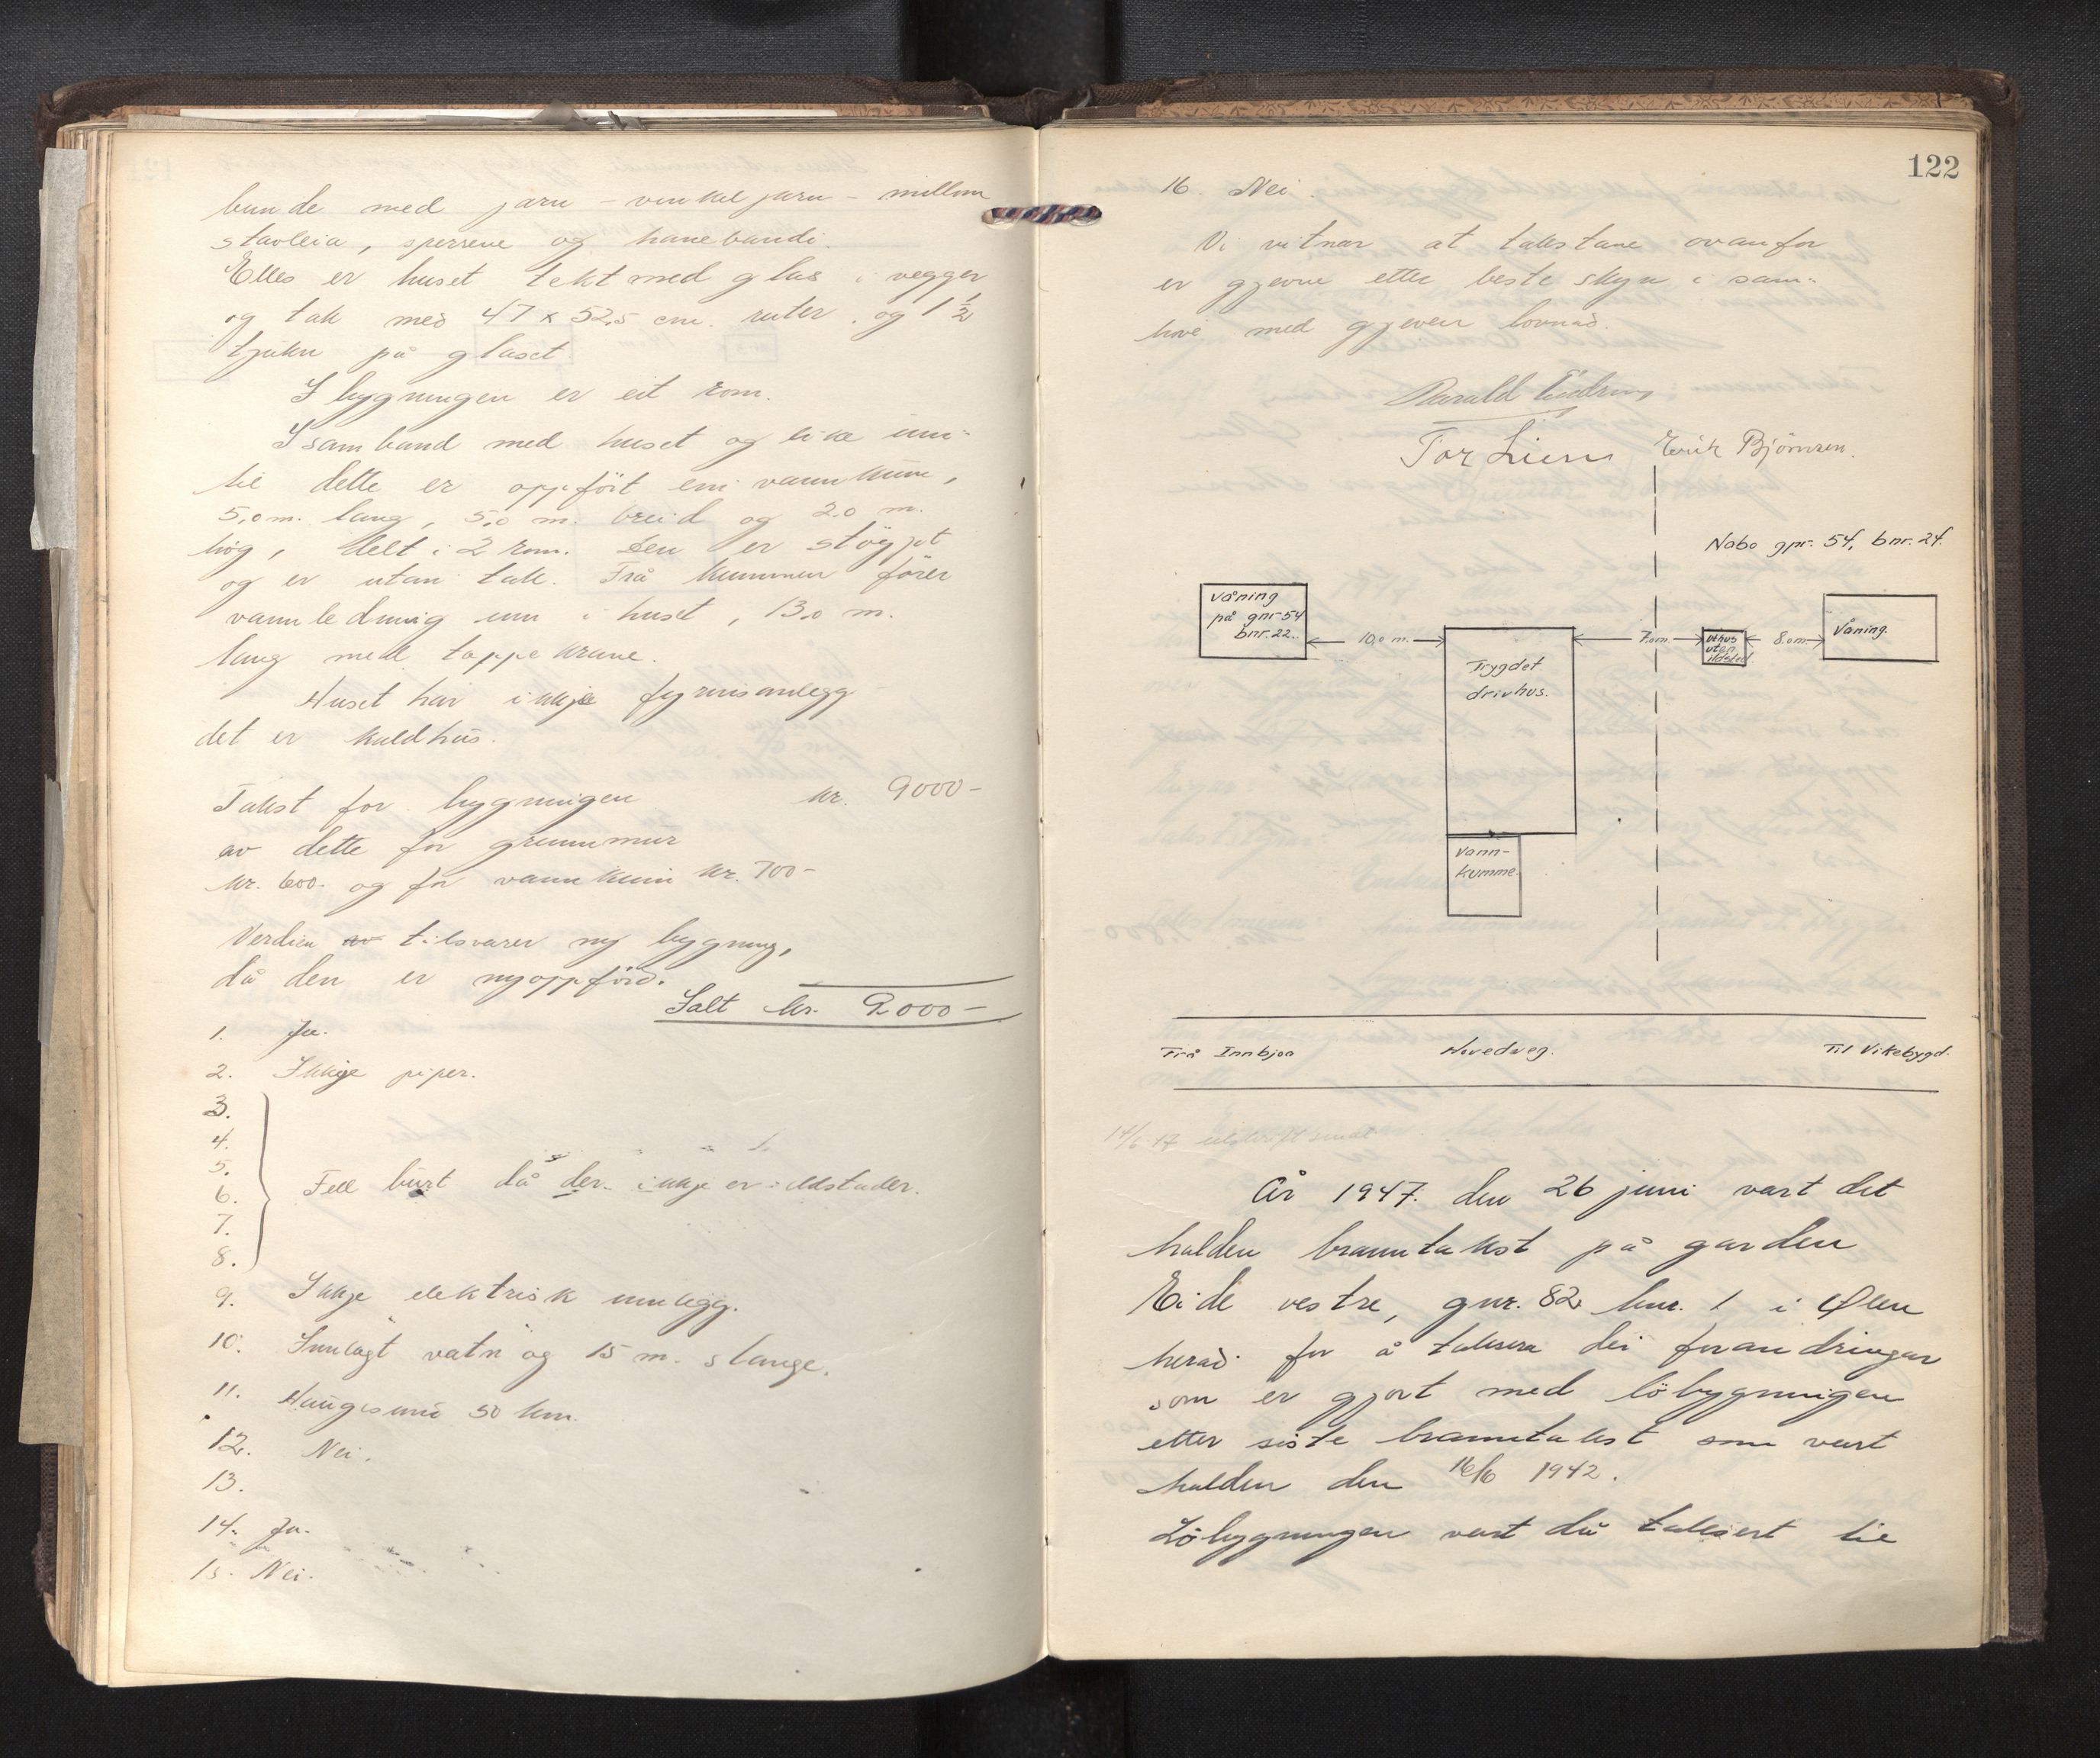 bunde med jarn - vinkeljarn - millom
stavleia, sperrene og hanebandi.
Elles er huset tekt med glas i vegger
og tak med 47 x 52,5 cm. ruter og 1 1/2
tjukn på glaset.
I bygningen er eit rom.
I samband med huset og like inn-
til dette er oppført ein vannkum,
5,0 m. lang, 5,0 m. breid og 2.0 m.
høg, delt i 2 rom. Den er støypt
og er utan tak. Frå kummen fører
vannledning inn i huset, 13,0 m.
lang med tappekrane.
Huset har ikkje fyringsanlegg
det er kaldhus.
Takst for bygningen kr. 9000-
av dette for grunnmur
kr. 600.- og for vannkum kr. 700-
Verdien av tilsvarer ny bygning,
då den er nyoppförd.
Ialt kr. 9000-
1. Ja.
2. Ikkje piper.
3.
4.
5.
6. Fell burt då der ikkje er eldstader.
7.
8.
9. Ikkje elektrisk innlegg.
10. Innlagt vatn og 15 m. slange.
11. Haugesund 50 km.
12. Nei.
13.
14. Ja.
15. Nei.
122
16. Nei.
Vi vitnar at takstane ovanfor
er gjevne etter beste skyn i sam-
hove med gjeven lovnad.
Harald
Tor Lien Erik Bjørnsen.
Nabo gnr. 54, bnr. 24.
Våning
på gnr 54
bnr. 22.
10,0 m.
Trygdet
drivhus.
7,0 m.
Uthus
uten
ildsted.
8,0 m.
Våning.
Vann-
kumme.
Frå Innbjoa Hovedveg. Til Vikebygd.
14/6 47 utskrift sendt
År 1947. den 26 juni vart det
halden branntakst på garden
Eide vestre, gnr. 82 bnr. 1 i Ølen
herad for å taksera dei forandringar
som er gjort med løbygningen
etter siste branntakst som vart
halden den 16/6 1942.
Løbygningen vart då taksert til